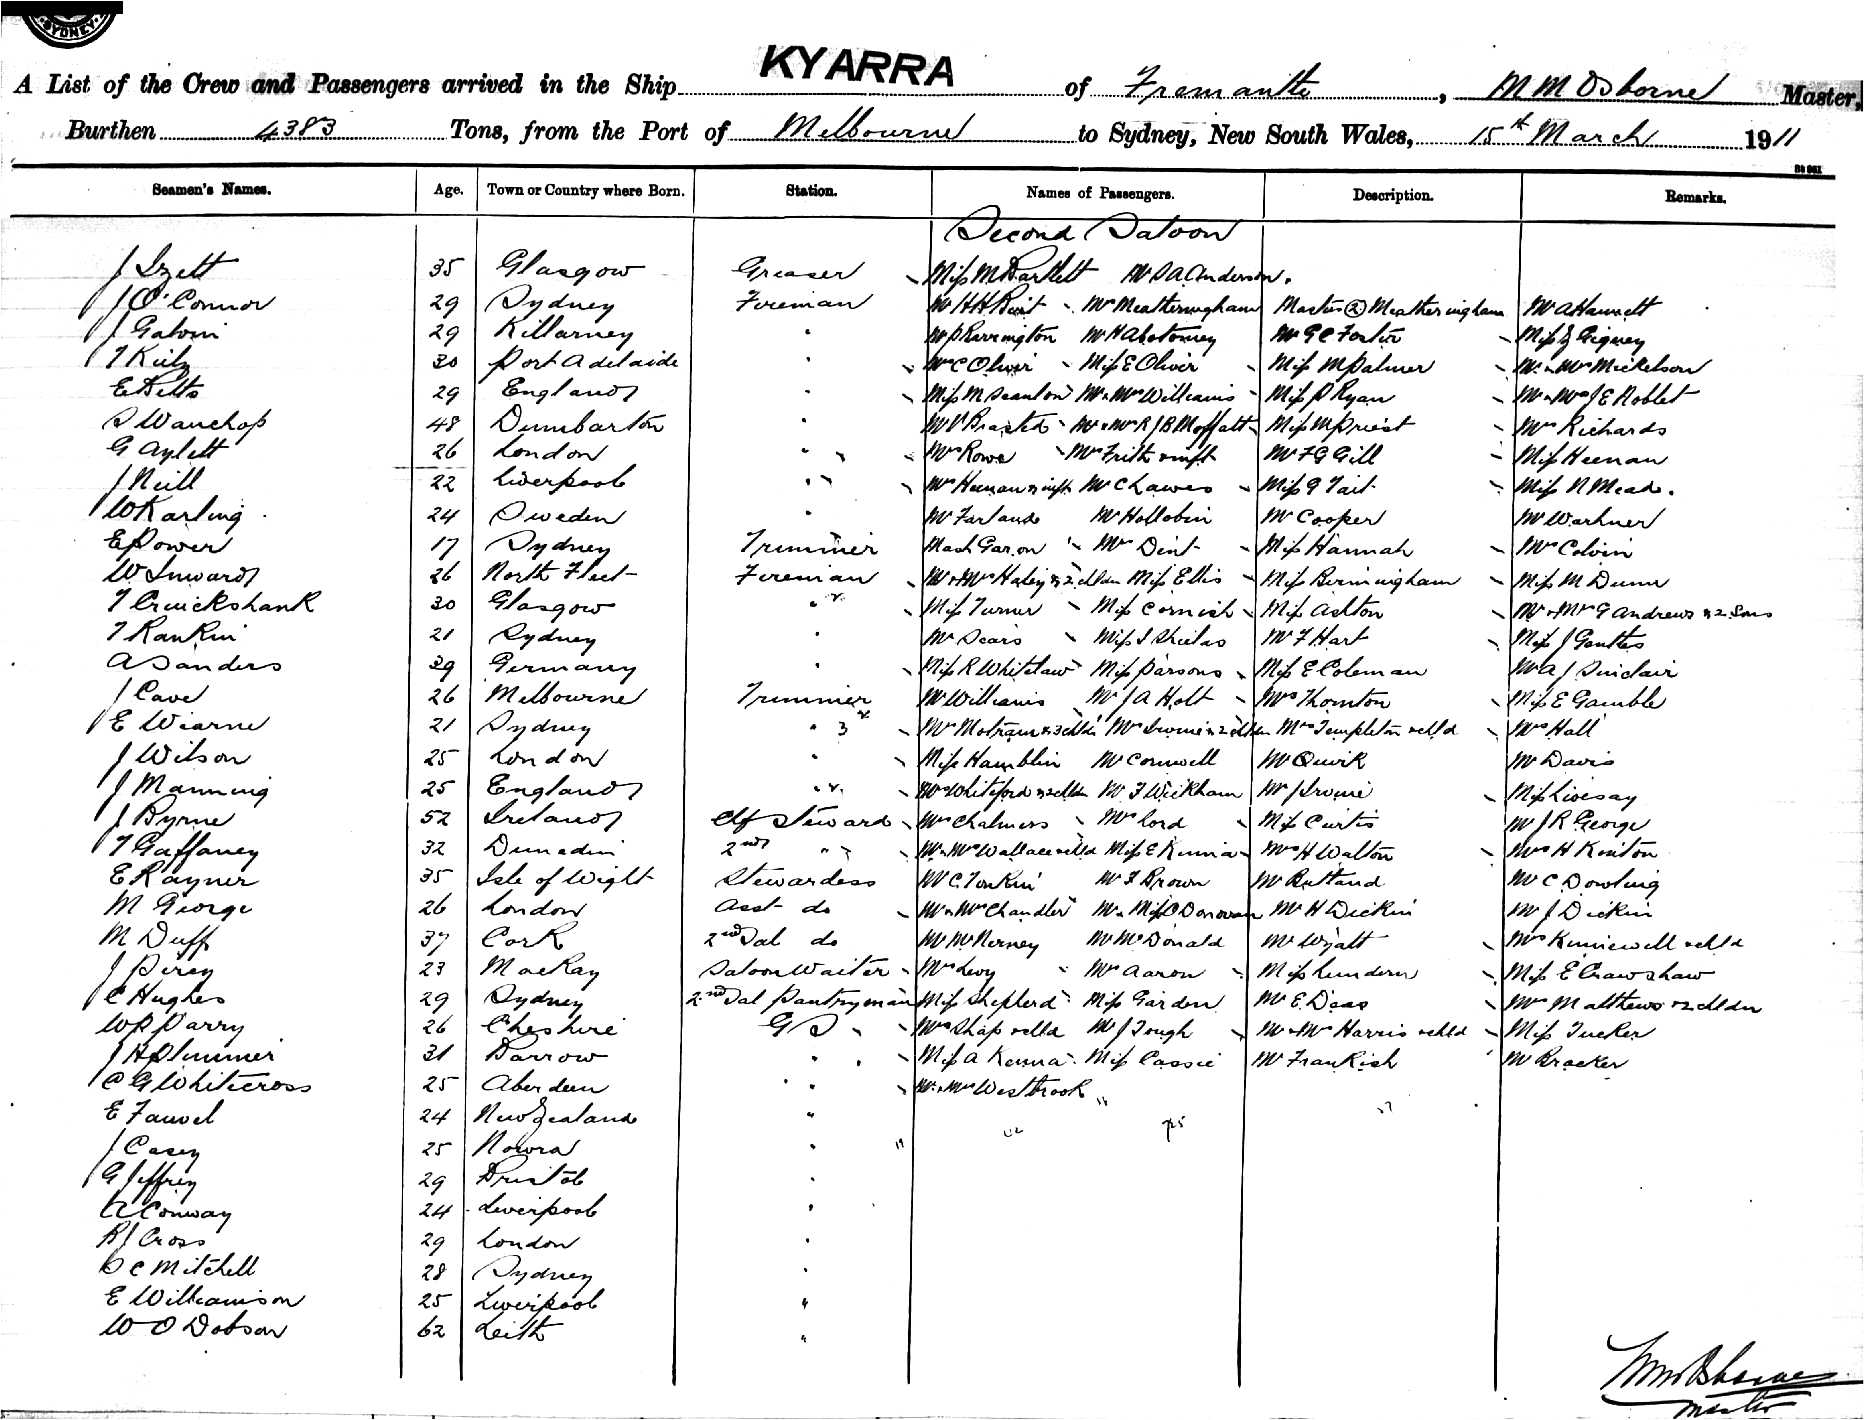 SYDNEY
KYARRA
A List of the Crew and Passengers arrived in the Ship of Fremantle, M M Osborne Master,
Burthen 4383 Tons, from the Port of Melbourne to Sydney, New South Wales, 15th March 1911
Seamen's Names. Age. Town or Country where Born. Station. Names of Passengers. Description. Remarks.
Second Saloon
J Izett 35 Glasgow Greaser Miss M Bartlett Mr S A Anderson.
J O'Connor 29 Sydney Fireman Mr H H Mrs Meatheringham Masters (2) Meatheringham Mr A Hamett
J Galvin 29 Killarney " Mr P Barrington Mr H Mr G C Forster Miss J Gigney
T Kiely 30 Port Adelaide Mrs C Oliver Miss E Oliver Miss M Palmer Mr & Mrs Mickelson
E Betts 29 England Miss M Scanlon Mr & Mrs Williams Miss P Ryan Mr & Mrs J E Noblet
S Wauchop 48 Dumbarton Mr V Brasted Mr & Mrs R J B Moffatt Miss M Priest Mrs Richards
G Aylett 26 London " Mrs Rowe Mrs Frith & inft Mr F G Gill Miss Heenan
J Neill 22 Liverpool " Mrs Heenan & inft Mr C Lawes Miss G Tait Miss N Mead.
W Karling 24 Sweden " Mr Farland Mr Hollobin Mr Cooper Mr Warhner
E Power 17 Sydney Trimmer Mast Garson Mrs Dent Miss Hannah Mrs Colvin
W Inward 26 North Fleet Fireman Mr & Mrs & 2 chldn Miss Ellis Miss Bermingham Miss M Dunn
T Cruickshank 30 Glasgow " Miss Turner Miss Cornish Miss Ashton Mr & Mrs G Andrews & 2 Sons
T Rankin 21 Sydney " Mr Sears Miss I Shields Mr F Hart Miss J Gentles
A Sanders 39 Germany " Miss R Whitelaw Miss Parsons Miss E Coleman Mr A J Sinclair
J Cave 26 Melbourne Trimmer Mr Williams Mr J A Holt Mrs Thornton Miss E Gamble
E Wearne 21 Sydney " Mrs Motram & 3 chldn Mrs Irvine & 2 chldn Mrs Templeton & chld Mrs Hall
J Wilson 25 London " Miss Hamblin Mr Connell Mr Quirk Mr Davis
J Manning 25 England " Mrs Whiteford & 2 chldn Mr F Wickham Mr J Irvine Miss Livesay
J Byrne 52 Ireland Chf Steward Mrs Chalmers Mrs Lord Miss Curtis Mr J R George
T Gaffaney 32 Dunedin 2nd " Mr & Mrs Wallace & chld Miss E Kenna Mrs H Walton Mrs H Kinton
E Rayner 35 Isle of Wight Stewardess Mr C Tonkin Mr F Brown Mr Butland Mr C Dowling
M George 26 London Asst do Mr & Mrs Chandler Mr & Miss O'Donovan Mr H Dickin Mr J Dickin
M Duff 37 Cork 2nd Sal do Mr McNerney Mr McDonald Mr Wyatt Mrs Kinniewell & chld
J Percy 23 MacKay Saloon Waiter Mrs Levy Mrs Aaron Miss Lundern Miss E Crawshaw
C Hughes 29 Sydney 2nd Sal Pantryman Miss Shepherd Miss Garden Mr E Deas Mrs Matthews & 2 chldn
W P Parry 26 Cheshire G S Mrs Shap & chld Mr J Tough Mr & Mrs Harris & chld Miss Tucker
J H Plummer 31 Barrow " Miss A Kenna Miss Cassie Mr Frankish Mr Bracker
C G Whitecross 25 Aberdeen " Mr & Mrs Westbrook
E Fauvel 24 New Zealand "
J Casey 25 Nowra "
G Jeffrey 29 Bristol "
A Conway 24 Liverpool "
R J Cross 29 London "
D C Mitchell 28 Sydney "
E Williamson 25 Liverpool "
W O Dobson 62 Leith "
M M Osborne
Master